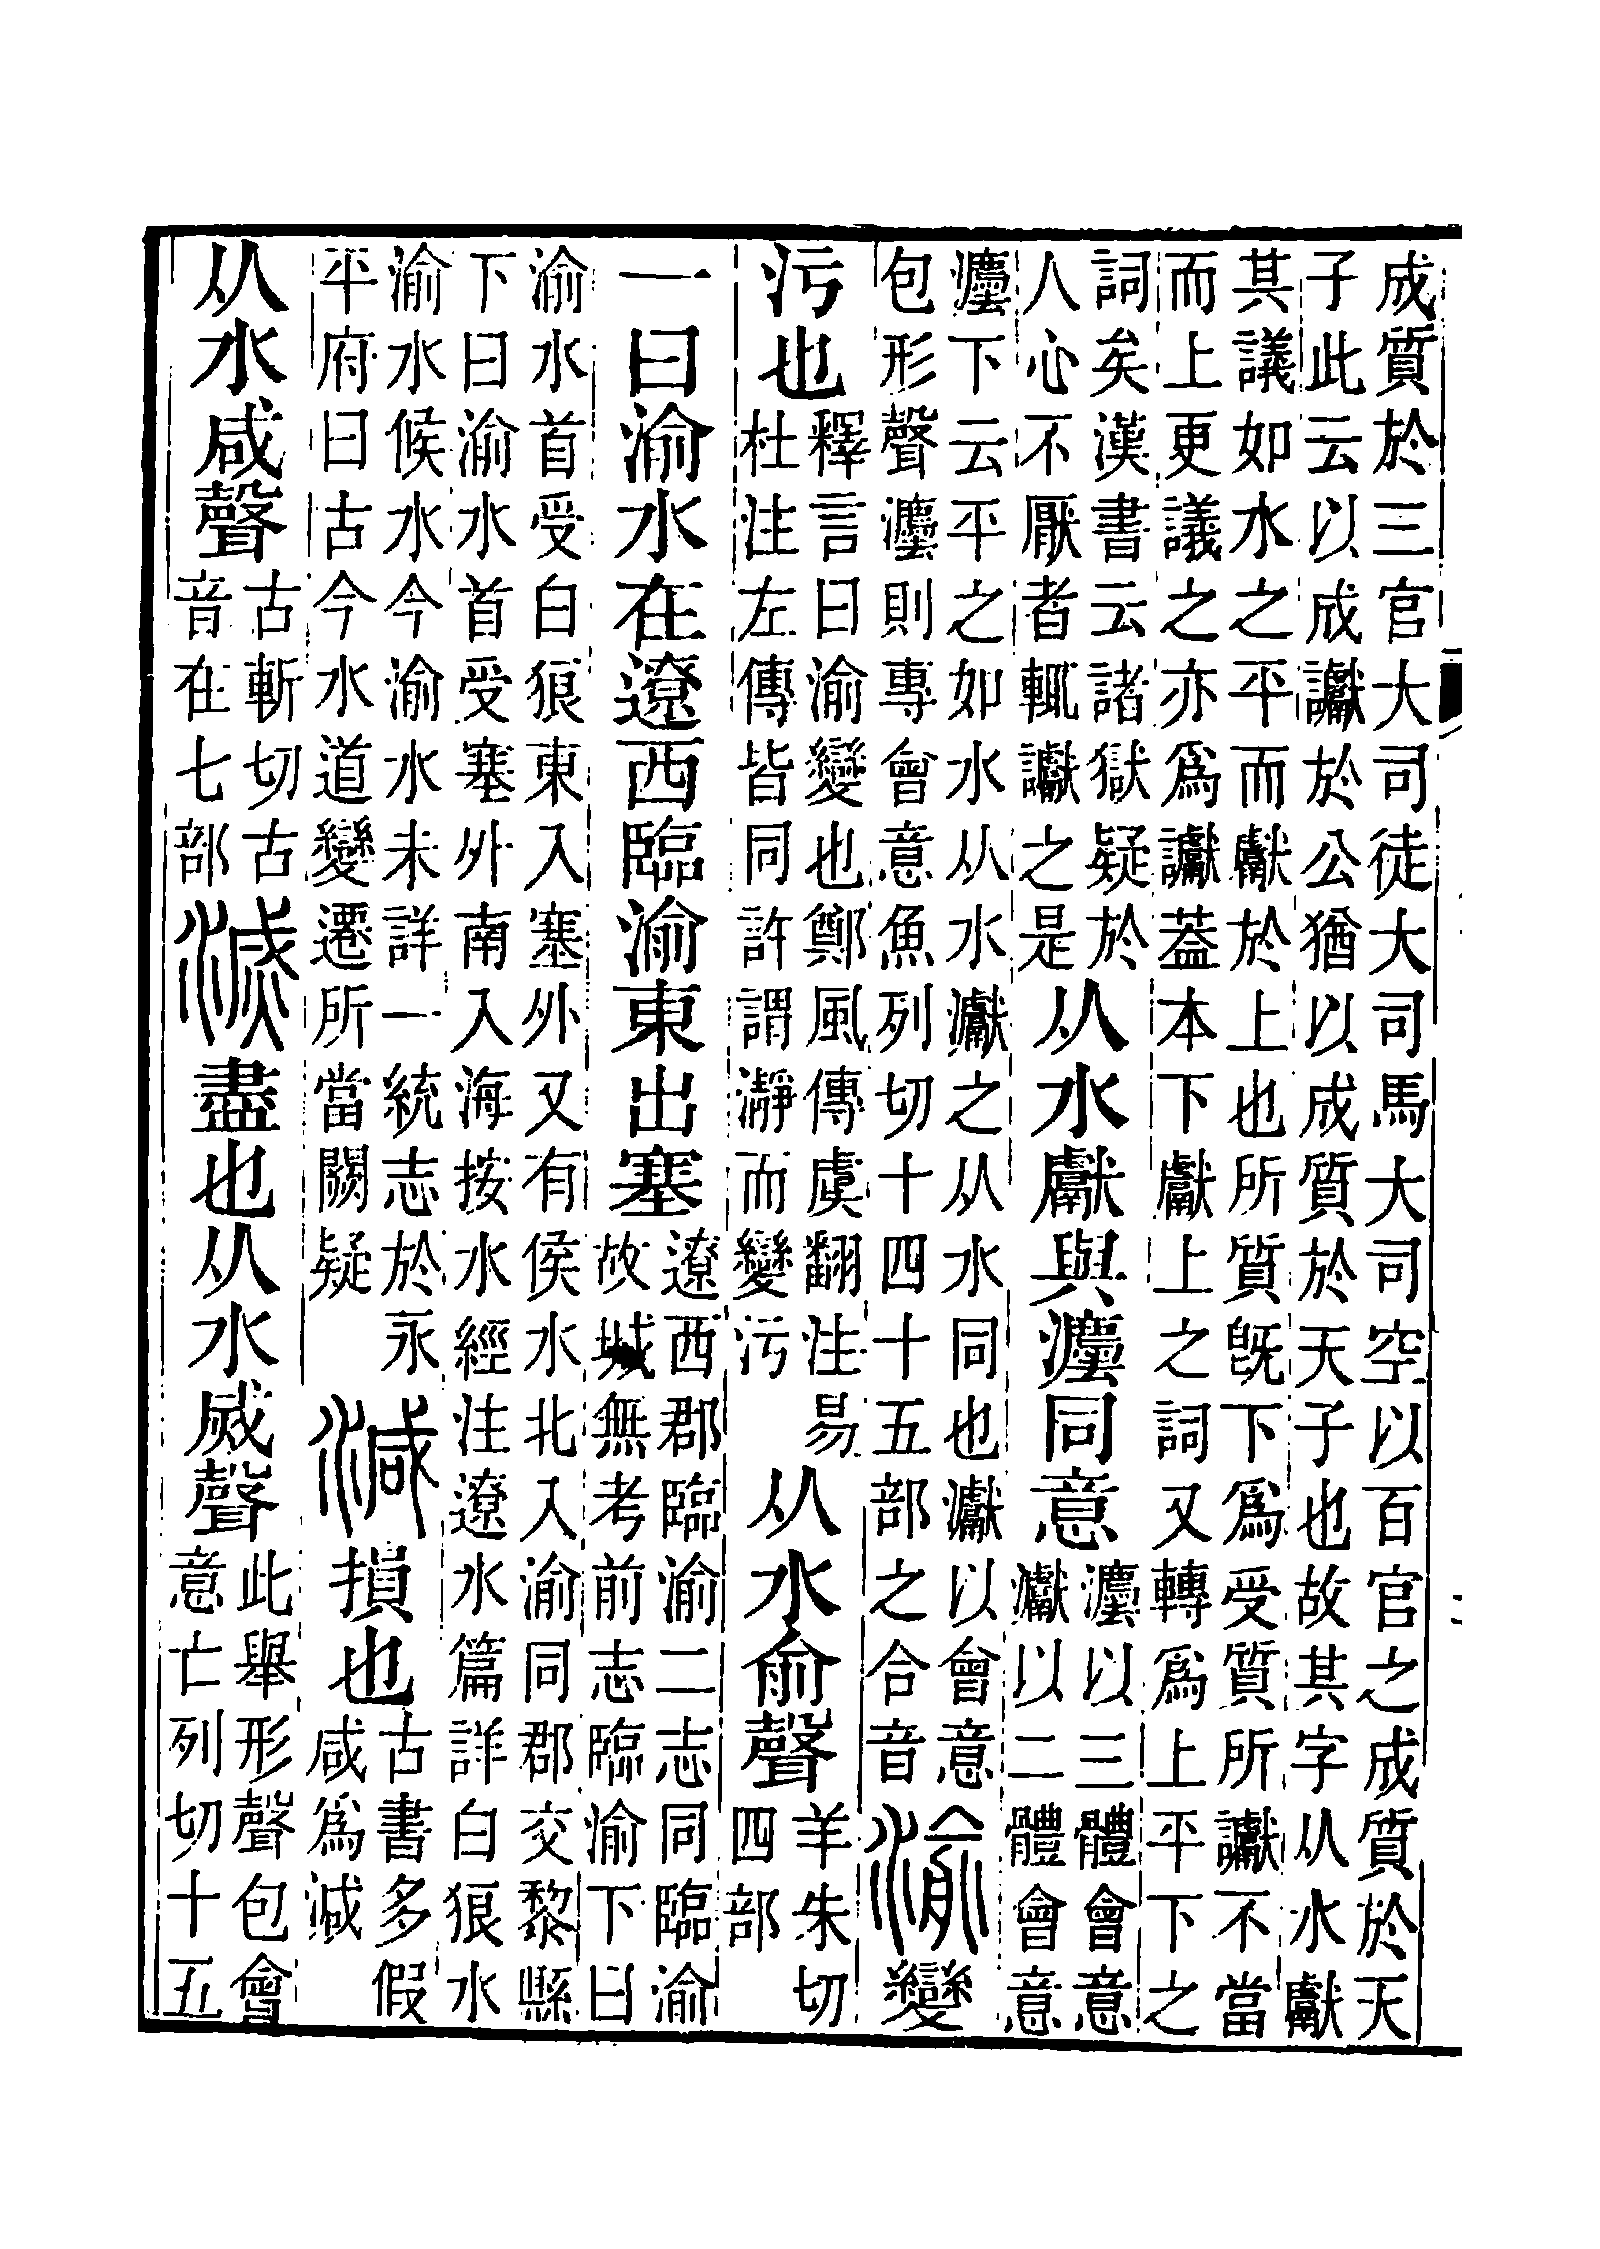 成質於三官大司徒大司馬大司空以百官之成質於天
子此云以成讞於公猶以成質於天子也故其字从水獻
其議如水之平而獻於上也所質旣下爲受質所讞不當
而上更議之亦爲讞蓋本下獻上之詞又轉爲上平下之
詞矣漢書云諸獄疑於
人心不厭者輒讞之是
从水獻與灋同意
灋以三體會意
𤅊以二體會意
灋下云平之如水从水𤅊之从水同也𤅊以會意
包形聲灋則專會意魚列切十四十五部之合音
渝變
污也
釋言曰渝變也鄭風傳虞翻注易
杜注左傳皆同許謂瀞而變污
从水俞聲
羊朱切
四部
一曰渝水在遼西臨渝東出塞
遼西郡臨渝二志同臨渝
故城無考前志臨渝下曰
渝水首受白狼東入塞外又有侯水北入渝同郡交黎縣
下曰渝水首受塞外南入海按水經注遼水篇詳白狼水
渝水候水今渝水未詳一統志於永
平府曰古今水道變遷所當闕疑
減損也
古書多假
咸爲減
从水咸聲
古斬切古
音在七部
滅盡也从水烕聲
此舉形聲包會
意亡列切十五